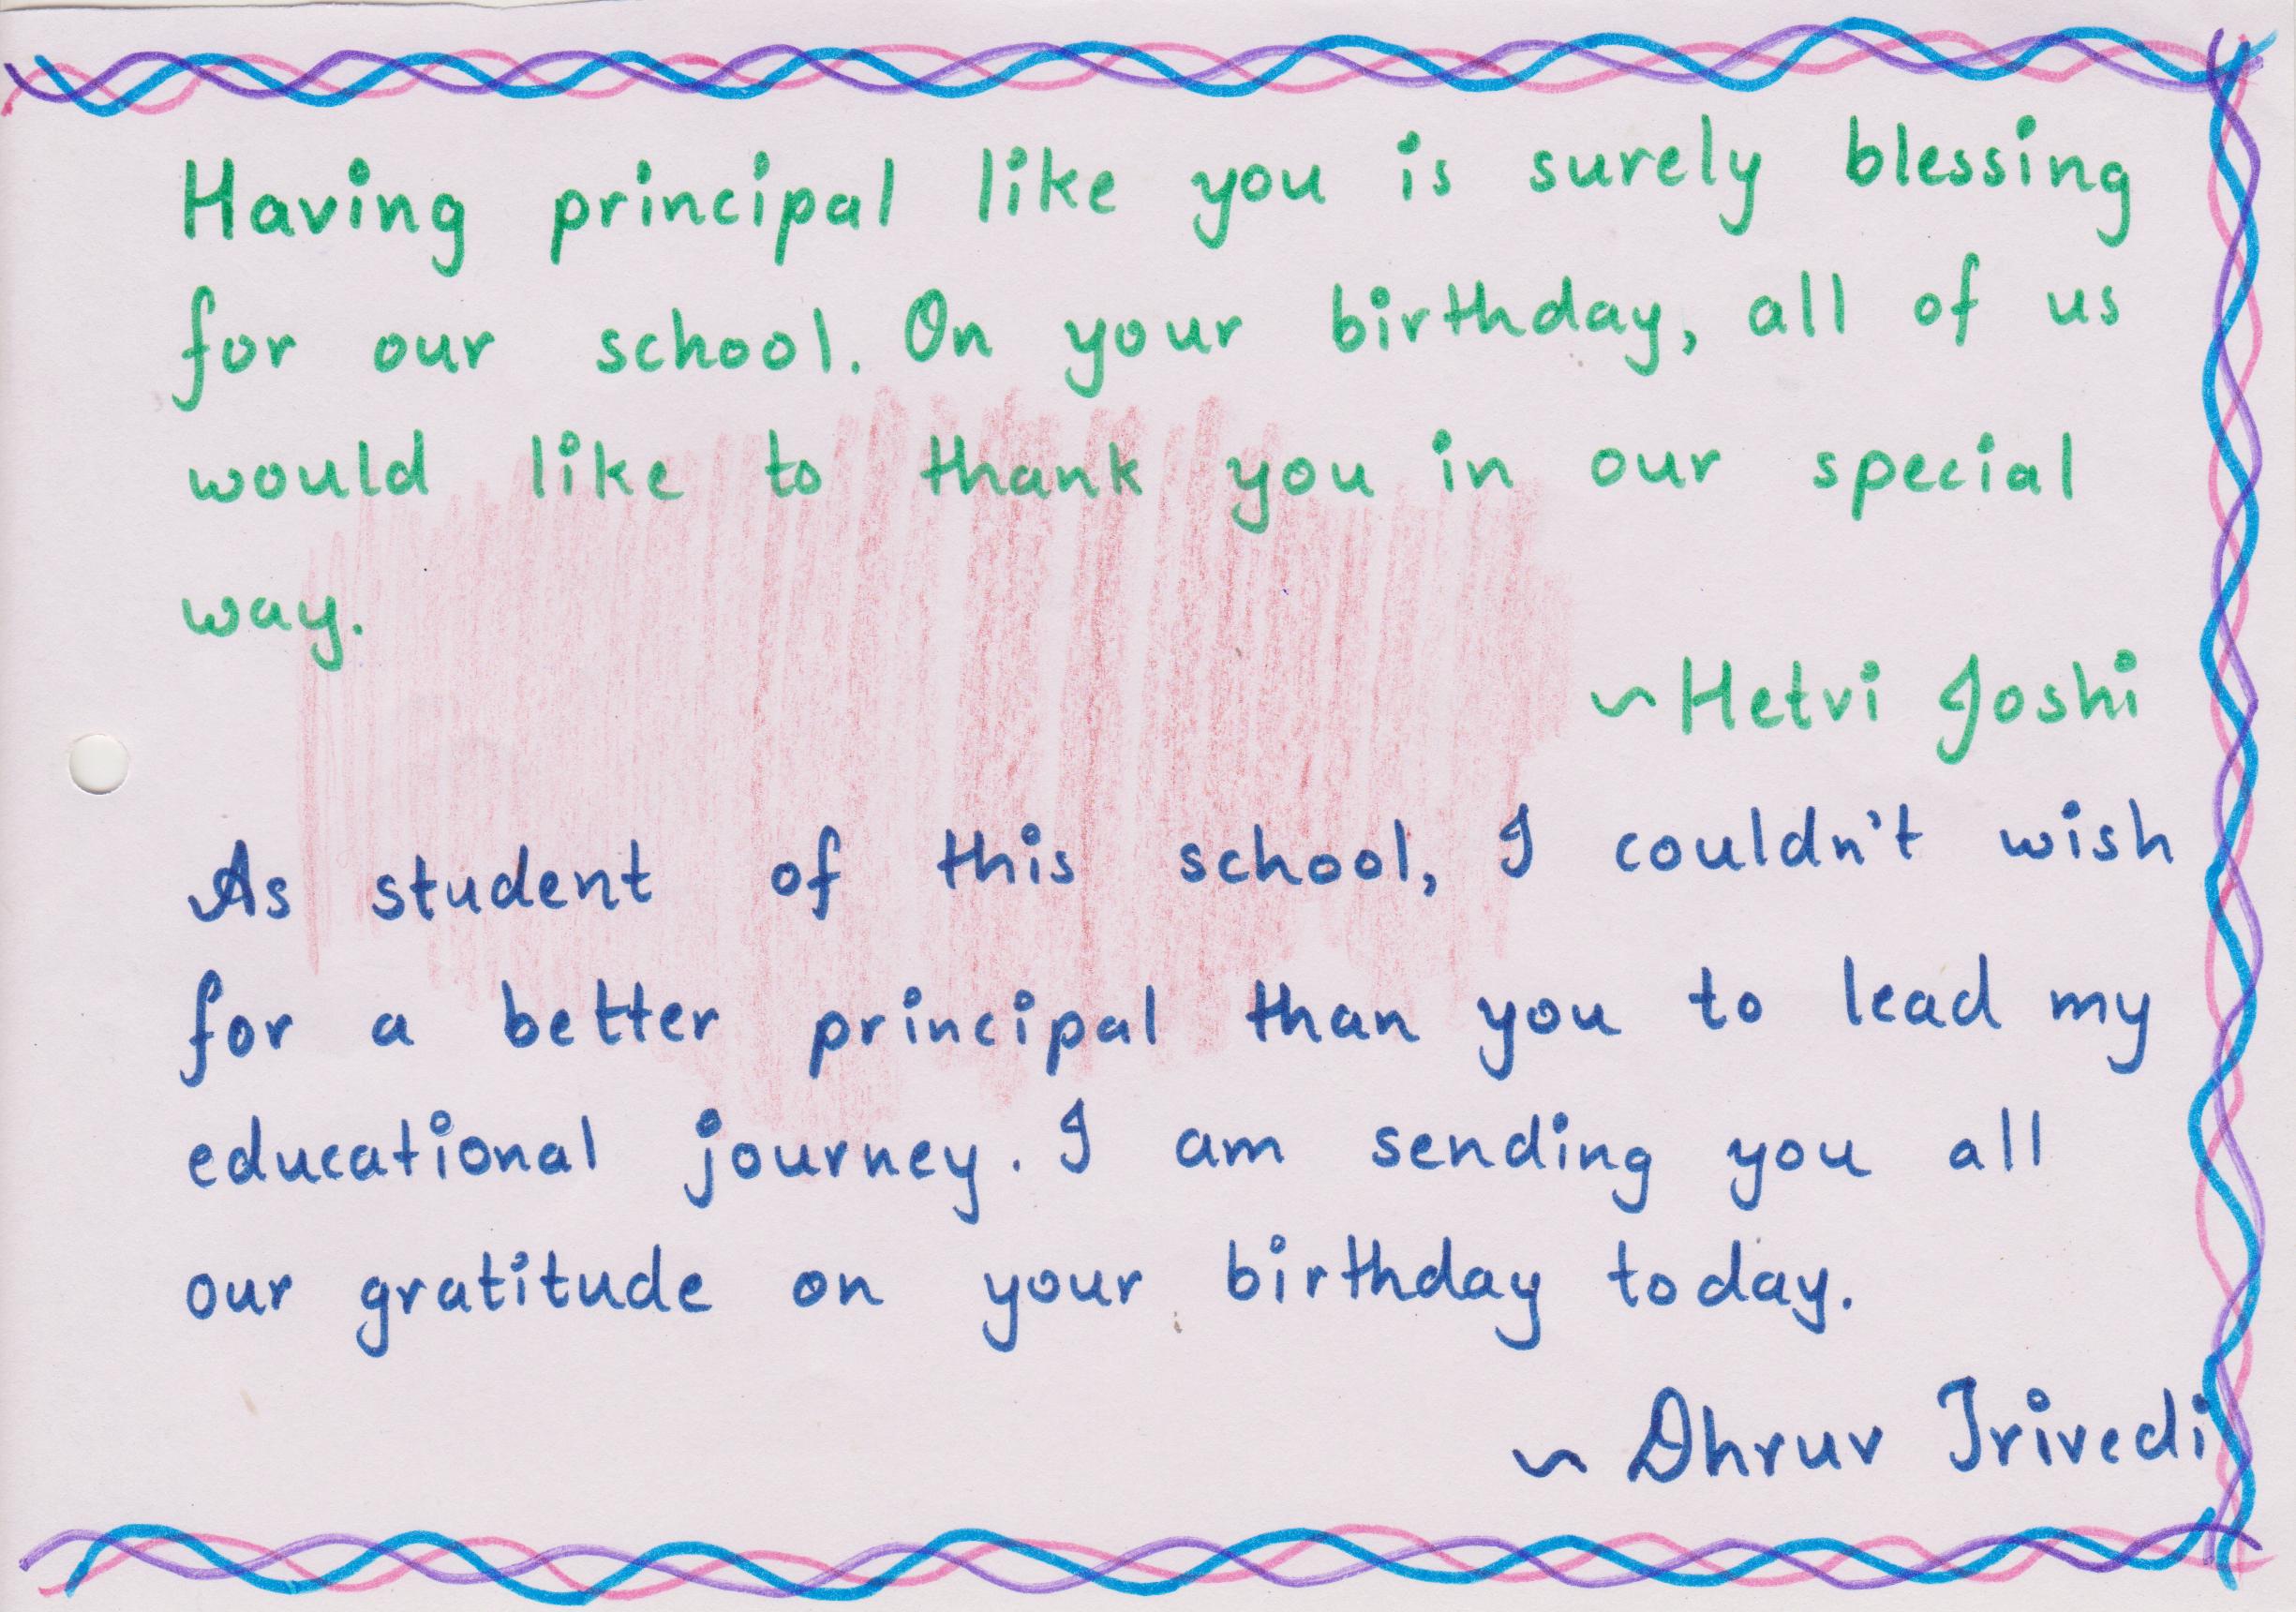 Having principal like you is surely blessing
for our school. On your birthday, all of us
would like to thank you in our special
way.
~Hetvi Joshi
As student of this school, I couldn't wish
for a better principal than you to lead my
educational journey. I am sending you all
our gratitude on your birthday today.
~ Dhruv Trivedi